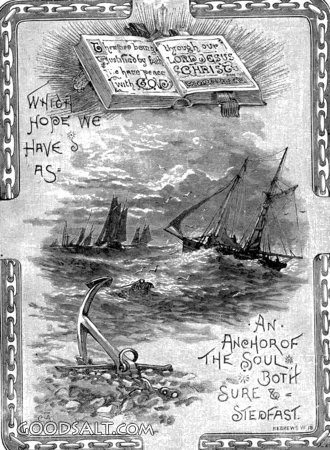 Therefore being
justified by faith
we have peace
with GOD
through our
LORD JESUS
CHRIST
WHICH
HOPE WE
HAVE
AS
AN
ANCHOR OF
THE SOUL
BOTH
SURE &
STEDFAST.
HEBREWS VI 19
© GOODSALT.COM